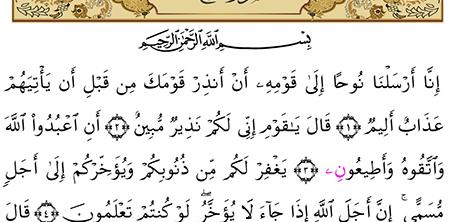 بِسْمِ اللَّهِ الرَّحْمَٰنِ الرَّحِيمِ
إِنَّا أَرْسَلْنَا نُوحًا إِلَىٰ قَوْمِهِۦ أَنْ أَنذِرْ قَوْمَكَ مِن قَبْلِ أَن يَأْتِيَهُمْ
عَذَابٌ أَلِيمٌ ﴿١﴾ قَالَ يَـٰقَوْمِ إِنِّى لَكُمْ نَذِيرٌ مُّبِينٌ ﴿٢﴾ أَنِ ٱعْبُدُوا۟ ٱللَّهَ
وَٱتَّقُوهُ وَأَطِيعُونِۦ ﴿٣﴾ يَغْفِرْ لَكُم مِّن ذُنُوبِكُمْ وَيُؤَخِّرْكُمْ إِلَىٰٓ أَجَلٍ
مُّسَمًّى ۚ إِنَّ أَجَلَ ٱللَّهِ إِذَا جَآءَ لَا يُؤَخَّرُ ۖ لَوْ كُنتُمْ تَعْلَمُونَ ﴿٤﴾ قَالَ